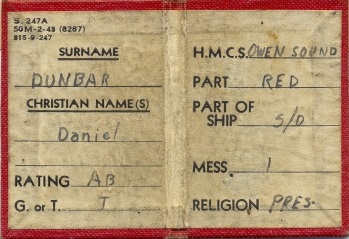 S. 247A
50M-2-43 (8287)
815-9-247
SURNAME
DUNBAR
CHRISTIAN NAME(S)
Daniel
RATING AB
G. or T. T
H.M.C.S. OWEN SOUND
PART RED
PART OF
SHIP S/D
MESS 1
RELIGION PRES.